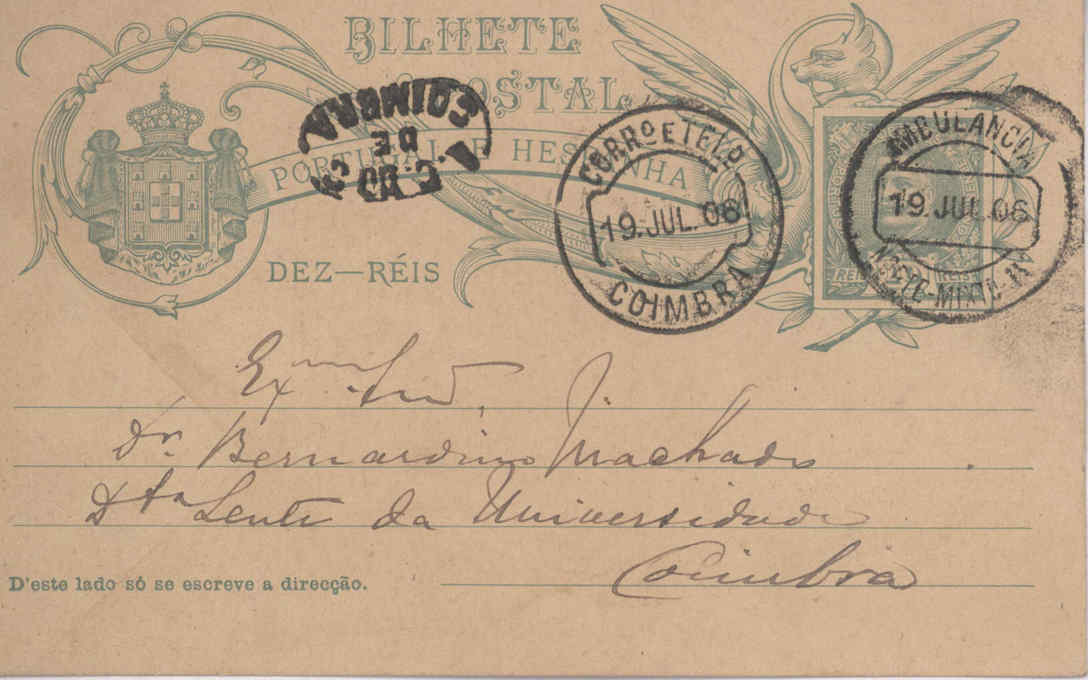 BILHETE
POSTAL
PORTUGAL E HESPANHA
DEZ—RÉIS
COIMBRA
DE
CORRº E TELº
19. JUL. 06
COIMBRA
AMBULANCIA
19. JUL. 06
REIS
Exmo Snr.
Dr. Bernardino Machado
Dº Lente da Universidade
Coimbra
D'este lado só se escreve a direcção.